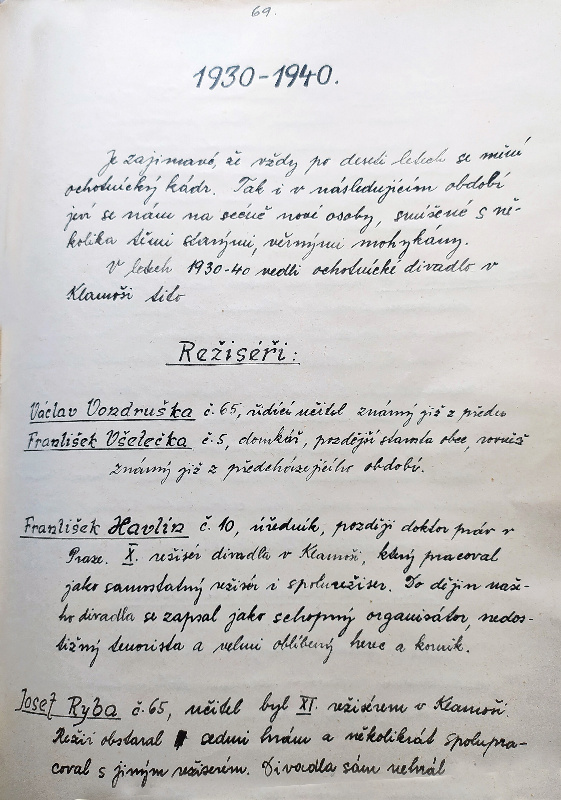 69.
1930-1940.
Je zajímavé, že vždy po deseti letech se mění
ochotnický kádr. Tak i v následujícím období
jeví se nám na scéně nové osoby, smíšené s ně-
kolika těmi starými, věrnými mohykány.
V letech 1930-40 vedli ochotnické divadlo v
Klamoši tito
Režiséři:
Václav Vozdruška č. 65, řídící učitel známý již z předu
František Všelečka č. 5, domkář, pozdější starosta obce, rovněž
známý již z předcházejícího období.
František Havlín č. 10, úředník, později doktor práv v
Praze. X. režisér divadla v Klamoši, který pracoval
jako samostatný režisér i spolurežiser. Do dějin naše-
ho divadla se zapsal jako schopný organisátor, nedos-
tižný tenorista a velmi oblíbený herec a komik.
Josef Ryba č. 65, učitel byl XI. režisérem v Klamoši.
Režii obstaral sedmi hrám a několikrát spolupra-
coval s jiným režisérem. Divadla sám nehrál